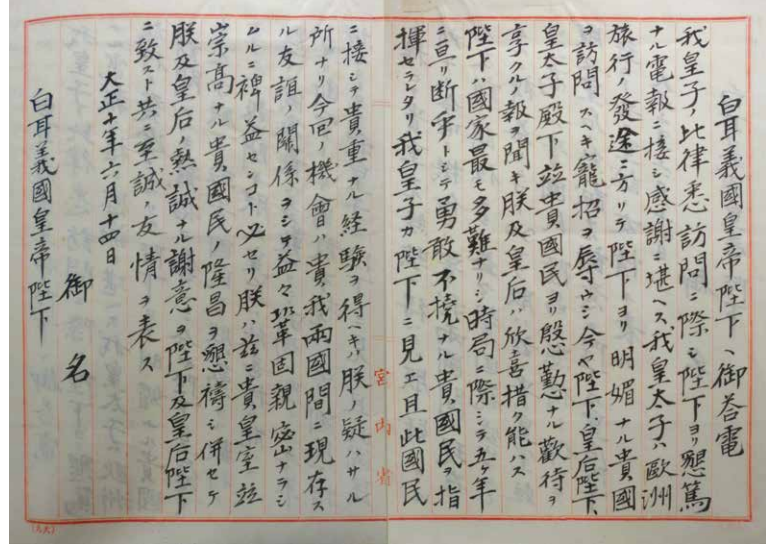 白耳義國皇帝陛下ヘ御答電
我皇子ノ比律悉訪問ニ際シ陛下ヨリ懇篤
ナル電報ニ接シ感謝ニ堪ヘス我皇太子ハ歐洲
旅行ノ發途ニ方リテ陛下ヨリ明媚ナル貴國
ヲ訪問スヘキ寵招ヲ辱ウシ今ヤ陛下、皇后陛下、
皇太子殿下竝貴國民ヨリ慇懃ナル歡待ヲ
享クルノ報ヲ聞キ朕及皇后ハ欣喜措ク能ハス
陛下ハ國家最モ多難ナリシ時局ニ際シテ五ヶ年
ニ亘リ断乎トシテ勇敢不撓ナル貴國民ヲ指
揮セラレタリ我皇子カ陛下ニ見エ且此國民
ニ接シテ貴重ナル経験ヲ得ヘキハ朕ノ疑ハサル
所ナリ今回ノ機會ハ貴我兩國間ニ現存ス
ル友誼ノ關係ヲシテ益々鞏固親密ナラシ
ムルニ裨益センコト必セリ朕ハ茲ニ貴皇室竝
崇高ナル貴國民ノ隆昌ヲ懇禱シ併セテ
朕及皇后ノ熱誠ナル謝意ヲ陛下及皇后陛下
ニ致スト共ニ至誠ノ友情ヲ表ス
大正十年六月十四日
御名
白耳義國皇帝陛下
宮内省